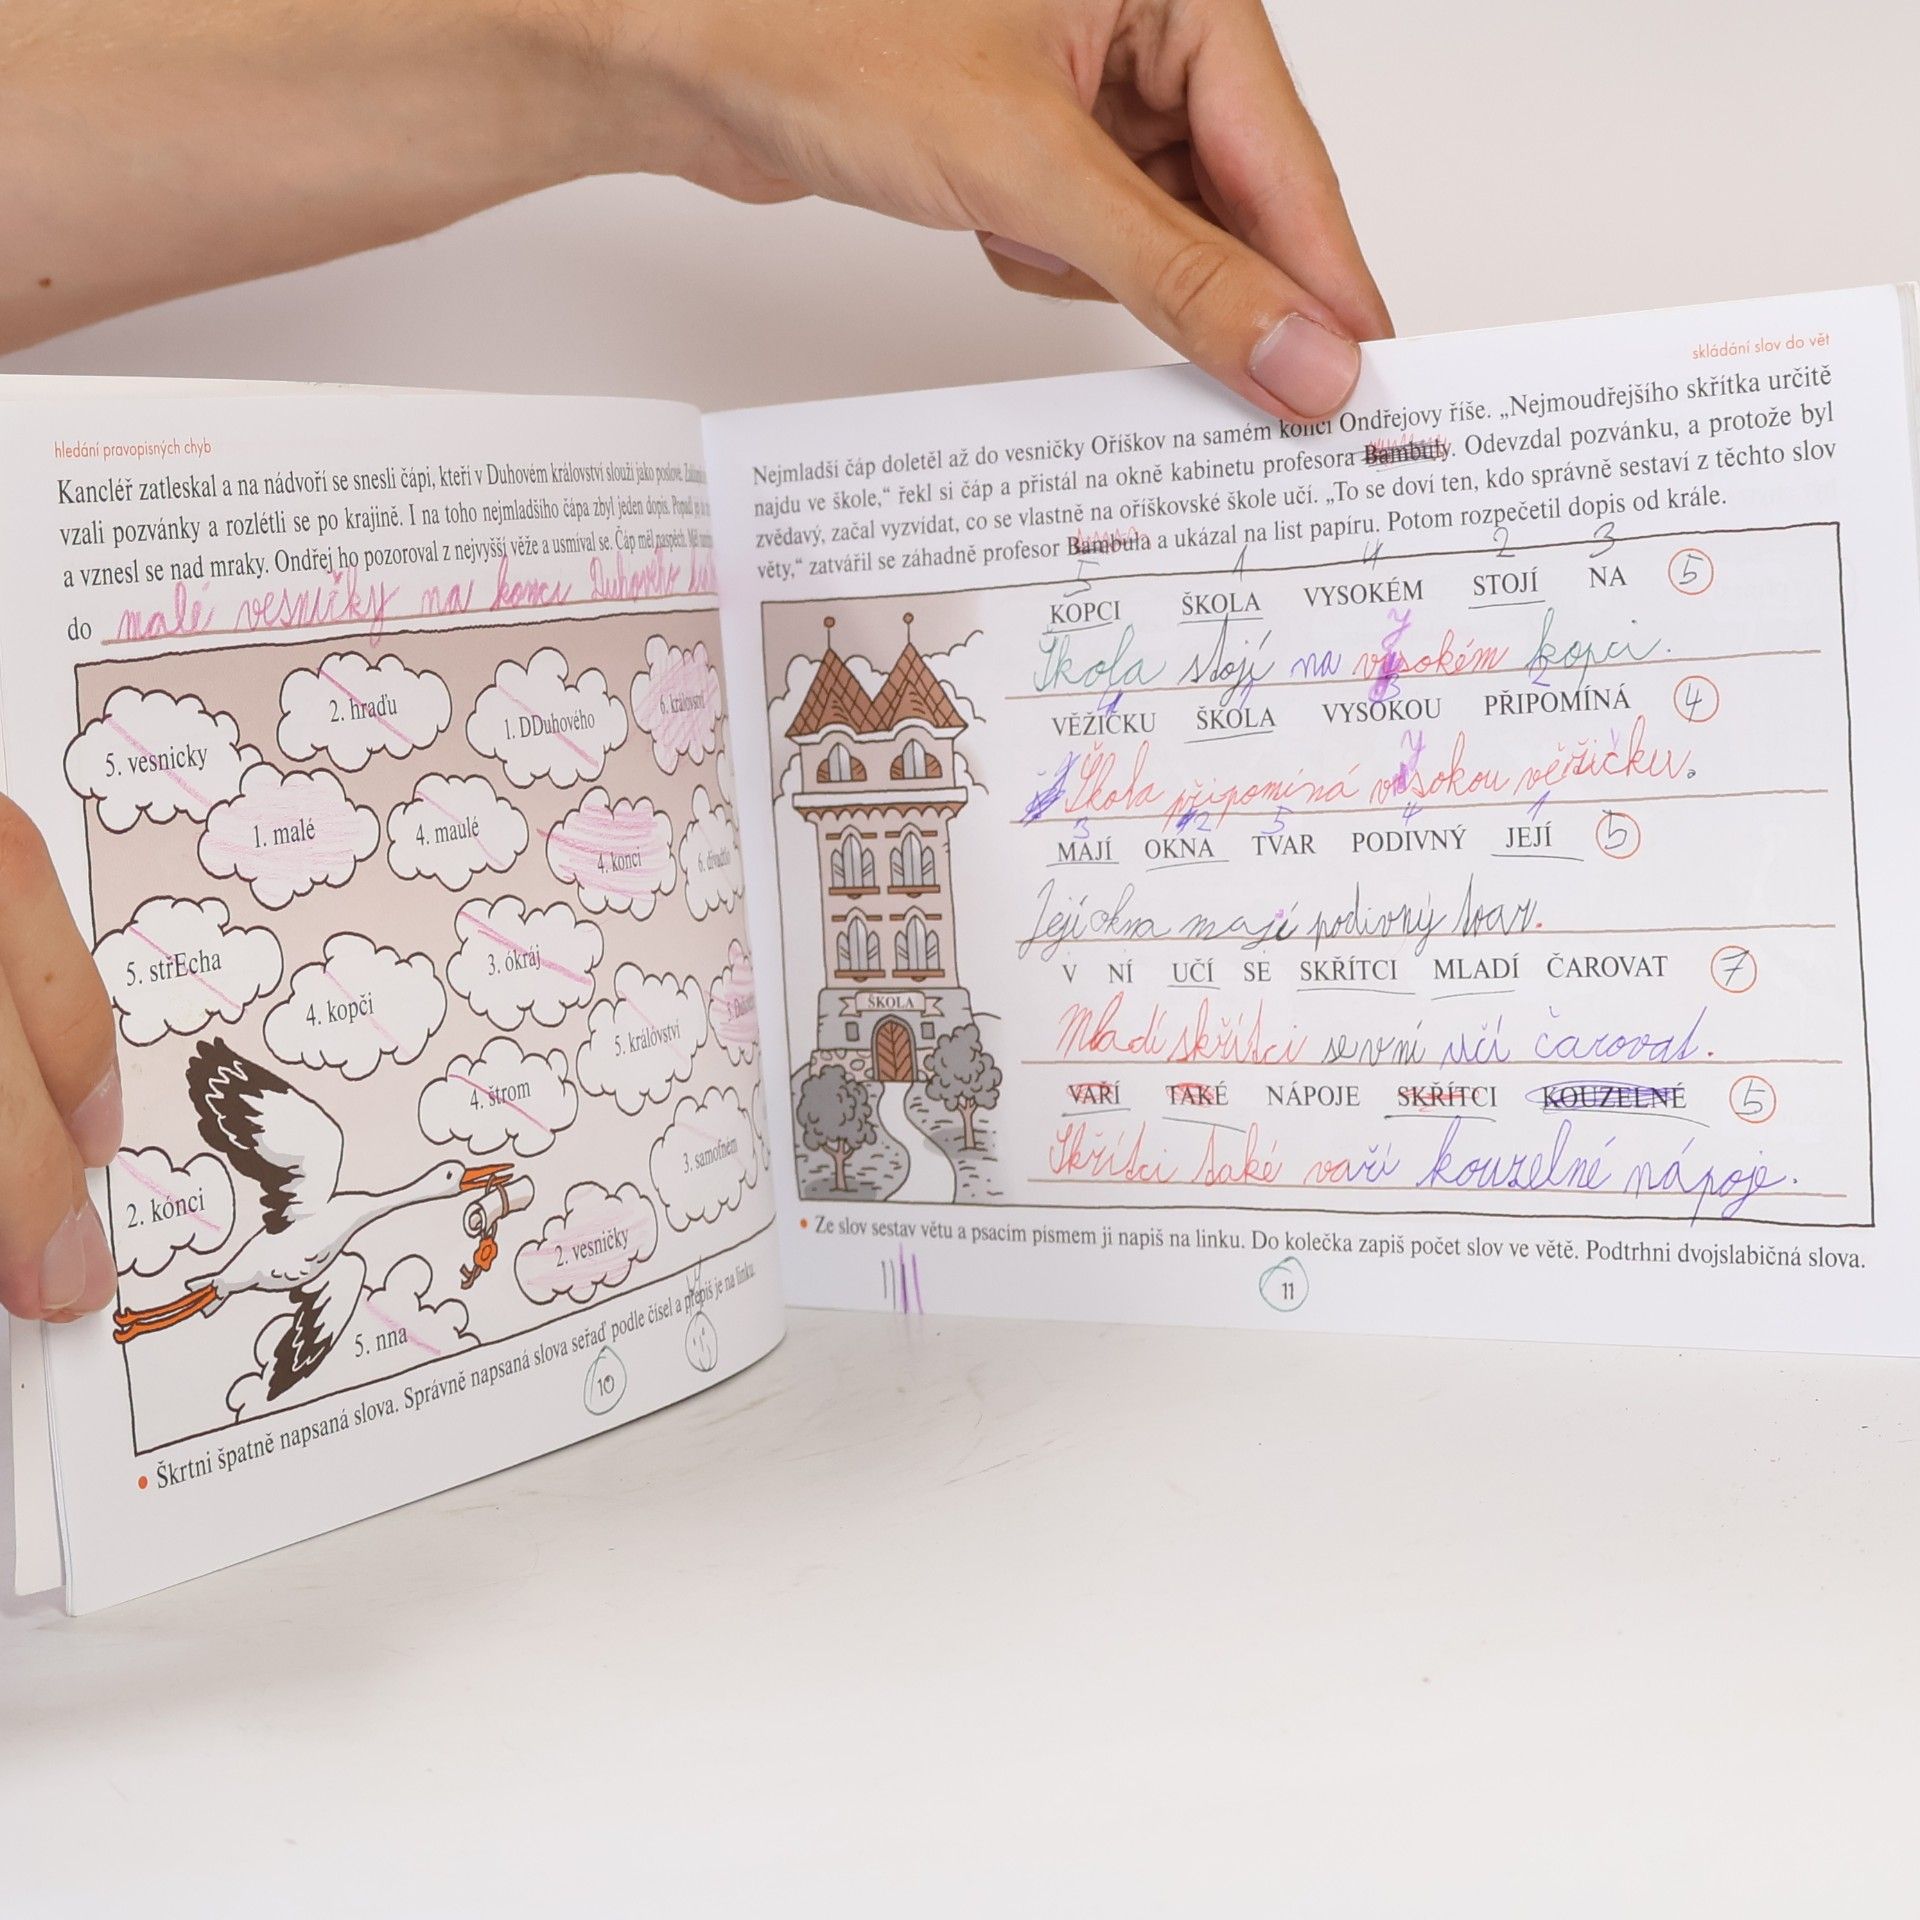 hledání pravopisných chyb
Kancléř zatleskal a na nádvoří se snesli čápi, kteří v Duhovém království slouží jako poslové.
vzali pozvánky a rozlétli se po krajině. I na toho nejmladšího čápa zbyl jeden dopis.
a vznesl se nad mraky. Ondřej ho pozoroval z nejvyšší věže a usmíval se. Čáp měl naspěch.
do malé vesničky na konci Duhového
5. vesnicky
2. hraďu
1. DDuhového
6. království
1. malé
4. maulé
4. konci
6. divadélo
5. střEcha
4. kopči
3. ókráj
5. králóvství
4. štrom
3. samořném
2. kónci
2. vesničky
5. nna
Škrtni špatně napsaná slova. Správně napsaná slova seřaď podle čísel a přepiš je na linku.
10
skládání slov do vět
Nejmladší čáp doletěl až do vesničky Oříškov na samém konci Ondřejovy říše. „Nejmoudřejšího skřítka určitě
najdu ve škole,“ řekl si čáp a přistál na okně kabinetu profesora Bambuly. Odevzdal pozvánku, a protože byl
zvědavý, začal vyzvídat, co se vlastně na oříškovské škole učí. „To se doví ten, kdo správně sestaví z těchto slov
věty,“ zatvářil se záhadně profesor Bambula a ukázal na list papíru. Potom rozpečetil dopis od krále.
5 1 4 2 3
KOPCI ŠKOLA VYSOKÉM STOJÍ NA 5
Škola stojí na vysokém kopci.
4 1 3 2
VĚŽIČKU ŠKOLA VYSOKOU PŘIPOMÍNÁ 4
Škola připomíná vysokou věžičku.
3 2 5 4 1
MAJÍ OKNA TVAR PODIVNÝ JEJÍ 5
Její okna mají podivný tvar.
V NÍ UČÍ SE SKŘÍTCI MLADÍ ČAROVAT 7
Mladí skřítci se v ní učí čarovat.
VAŘÍ TAKÉ NÁPOJE SKŘÍTCI KOUZELNÉ 5
Skřítci také vaří kouzelné nápoje.
ŠKOLA
Ze slov sestav větu a psacím písmem ji napiš na linku. Do kolečka zapiš počet slov ve větě. Podtrhni dvojslabičná slova.
11